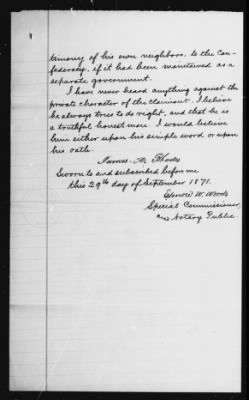 timony of his own neighbors, to the Con-
federacy, if it had been maintained as a
separate government.
I have never heard anything against the
private character of the claimant. I believe
he always tries to do right, and that he is
a truthful honest man. I would believe
him either upon his simple word or upon
his oath.
James M. Rhodes
Sworn to and subscribed before me
this 29th day of September 1871.
W. Woods
Special Commissioner,
and Notary Public.